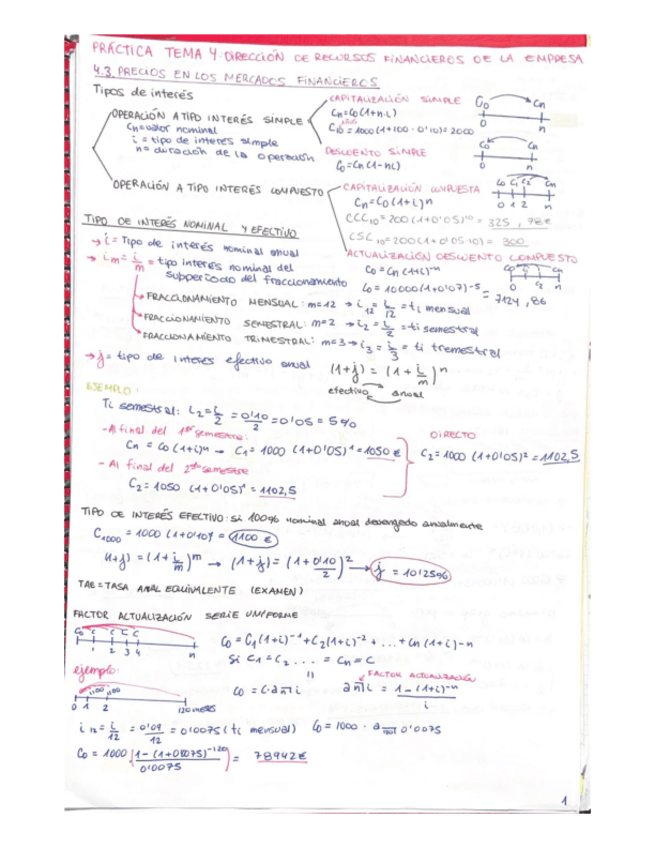 PRÁCTICA TEMA 4. DIRECCIÓN DE RECURSOS FINANCIEROS DE LA EMPRESA
4.3. PRECIOS EN LOS MERCADOS FINANCIEROS
Tipos de interés
OPERACIÓN A TIPO INTERÉS SIMPLE
Cn = valor nominal
i = tipo de interés simple
n = duración de la operación
CAPITALIZACIÓN SIMPLE
Cn = C0 (1+n·i)
C10 = 1000 (1+100·0'10) = 2000
C0 Cn
0 n
DESCUENTO SIMPLE
C0 = Cn (1-ni)
C0 Cn
0 n
OPERACIÓN A TIPO INTERÉS COMPUESTO
CAPITALIZACIÓN COMPUESTA
Cn = C0 (1+i)^n
C0 C1 C2 Cn
0 1 2 n
CCC10 = 200 (1+0'05)^10 = 325,78€
CSC10 = 200 (1+0'05·10) = 300
ACTUALIZACIÓN DESCUENTO COMPUESTO
C0 = Cn (1+i)^-n
C0 = 10000 (1+0'07)^-5 = 7124,86
C0 Cn
0 1 2 n
TIPO DE INTERÉS NOMINAL Y EFECTIVO
→ i = Tipo de interés nominal anual
→ im = i/m = tipo interés nominal del
subperiodo del fraccionamiento
→ FRACCIONAMIENTO MENSUAL: m=12 → i12 = i/12 = ti mensual
→ FRACCIONAMIENTO SEMESTRAL: m=2 → i2 = i/2 = ti semestral
→ FRACCIONAMIENTO TRIMESTRAL: m=3 → i3 = i/3 = ti tremestral
→ j = tipo de interes efectivo anual (1+j) = (1+i/m)^n
efectivo anual
EJEMPLO:
Ti semestral: i2 = i/2 = 0'10/2 = 0'05 = 5%
- Al final del 1er semestre:
Cn = C0 (1+i)^n → C1 = 1000 (1+0'05)^1 = 1050 €
- Al final del 2do semestre
C2 = 1050 (1+0'05)^1 = 1102,5
DIRECTO
C2 = 1000 (1+0'05)^2 = 1102,5
TIPO DE INTERÉS EFECTIVO: si 100% nominal anual devengado anualmente
C1000 = 1000 (1+0'10) = 1100 €
(1+j) = (1+i/m)^m → (1+j) = (1+0'10/2)^2 → j = 10'25%
TAE = TASA ANUAL EQUIVALENTE (EXAMEN)
FACTOR ACTUALIZACIÓN SERIE UNIFORME
C0 C C C C
1 2 3 4 n
C0 = C1 (1+i)^-1 + C2 (1+i)^-2 + ... + Cn (1+i)^-n
Si C1 = C2 ... = Cn = C
ejemplo:
FACTOR ACTUALIZACIÓN
C0 = C·an┐i an┐i = 1-(1+i)^-n / i
0 1 2 120 meses
i12 = i/12 = 0'09/12 = 0'0075 (ti mensual) C0 = 1000 · a120┐0'0075
C0 = 1000 [1-(1+0'0075)^-120 / 0'0075] = 78942€
1